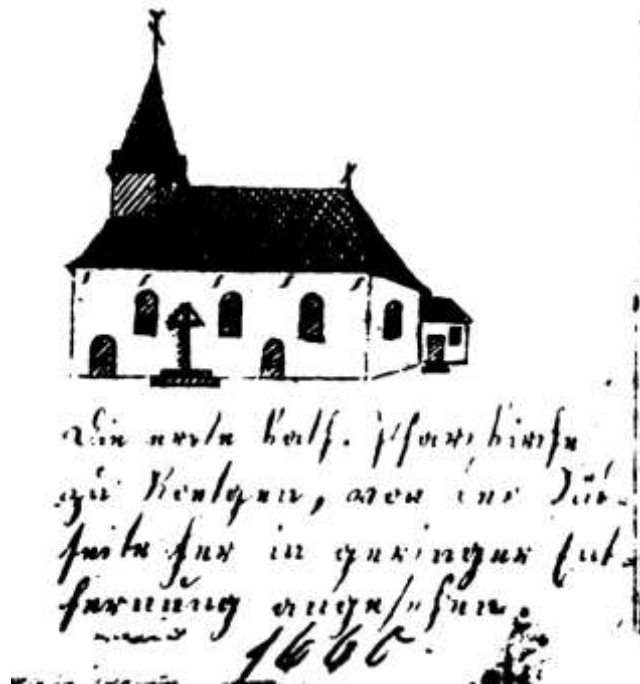 Die erste kath. Pfarrkirche
zu Roetgen, von der Süd-
seite her in geringer Ent-
fernung angesehen.
1660.